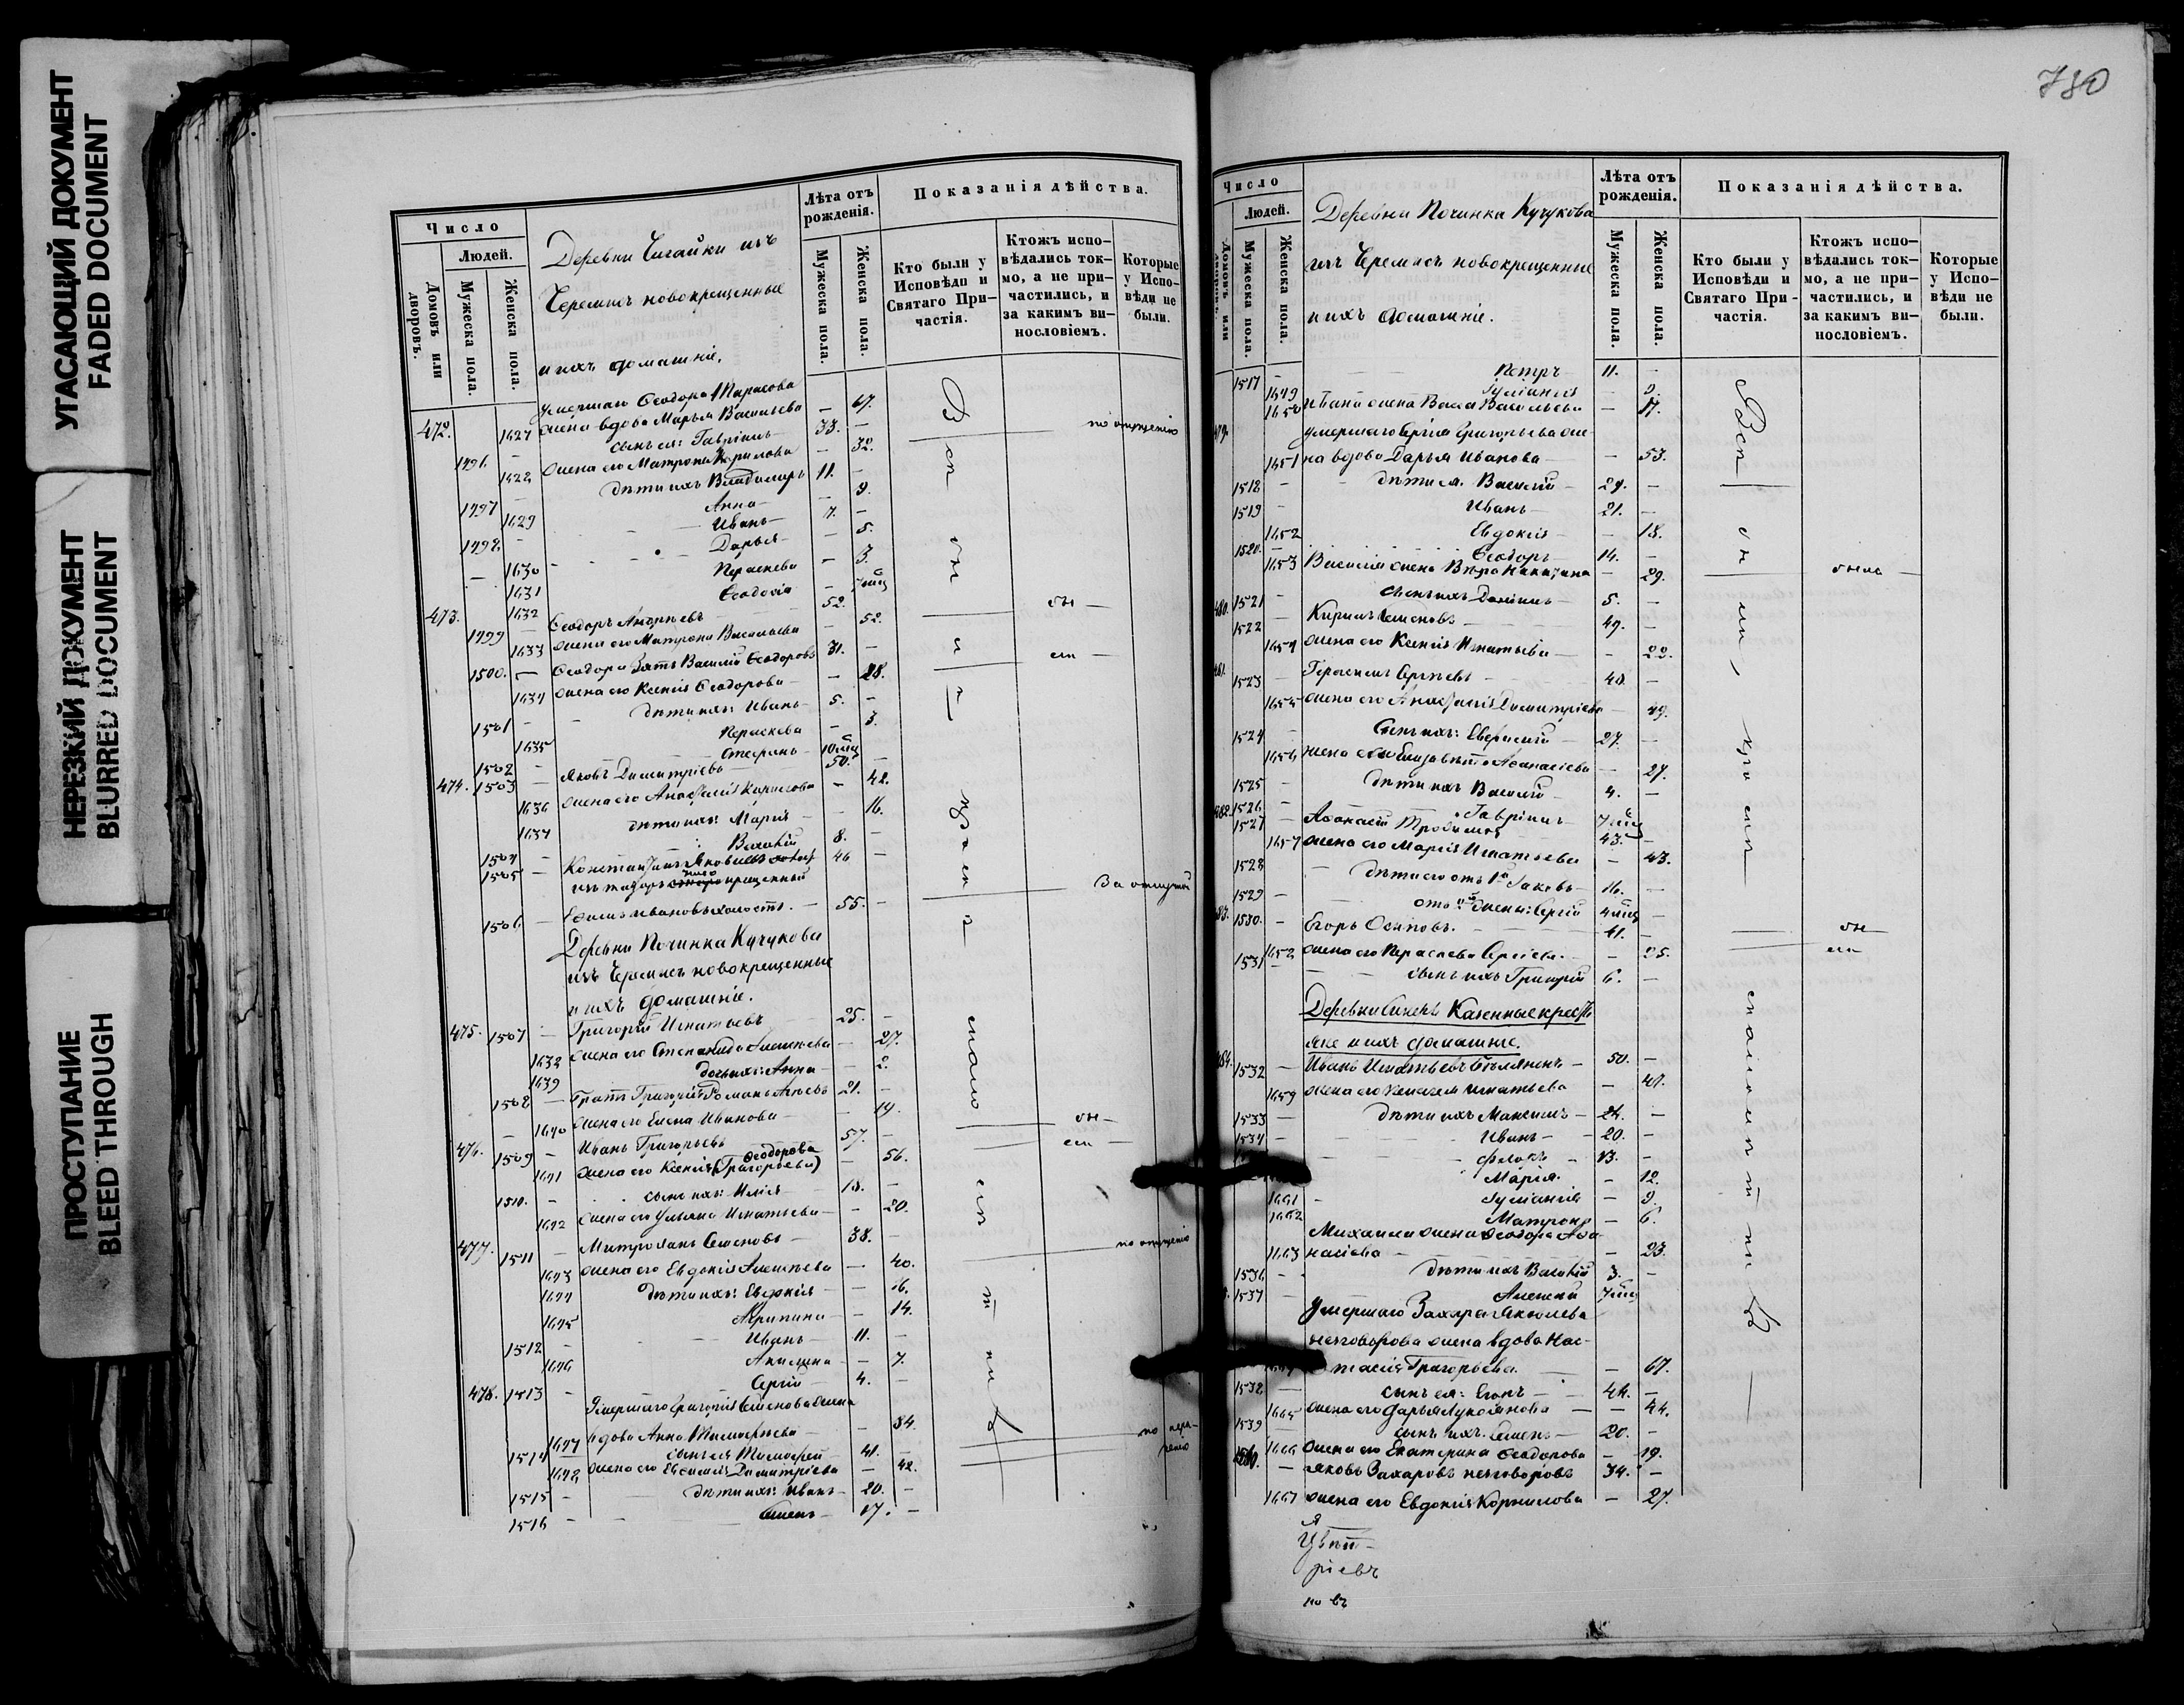 УГАСАЮЩИЙ ДОКУМЕНТ
FADED DOCUMENT
НЕРЕЗКИЙ ДОКУМЕНТ
BLURRED DOCUMENT
ПРОСТУПАНИЕ
BLEED THROUGH
Число
Людей.
Домовъ или дворовъ.
Мужеска пола.
Женска пола.
Деревни Чигайки изъ
Черемисъ новокрещенные
и ихъ домашніе.
Лѣта отъ рожденія.
Мужеска пола.
Женска пола.
Показанія дѣйства.
Кто были у Исповѣди и Святаго Причастія.
Ктожъ исповѣдались токмо, а не причастились, и за какимъ винословіемъ.
Которые у Исповѣди не были.
умершаго Ѳеодора Тарасова
472. 1627 жена вдова Марья Васильева — 67.
1496. — сынъ ея: Гавріилъ 33. — по опущенію
1628 жена его Матрона Кирилова — 32.
1497 дѣти ихъ Владимиръ 11. —
1629 Анна — 9.
1498 — Иванъ 7. —
1630 Дарья — 5.
1631 Параскева — 3.
1632 Ѳеодосія
473. 1499 — Ѳеодоръ Андреевъ 52. он —
1633 жена его Матрона Васильева — 52.
1500. — Ѳеодора зять Василій Ѳеодоровъ 31. —
1634 жена его Ксенія Ѳеодорова — 28.
1501 — дѣти ихъ: Иванъ 5. —
1635 Параскева — 3.
1502 — Стефанъ 10
474. 1503 — Яковъ Димитріевъ 50. —
1636 жена его Анастасія Кирилова — 42.
1637 дѣти ихъ: Марія — 16.
1504 — Василій 8. —
1505 — Константинъ Яковлевъ 46 —
крещенный
1506 — Ефимъ Ивановъ холостъ. — 55. — За отлучкой
Деревни Починка Кучукова
изъ Черемисъ новокрещенные
и ихъ домашніе.
475. 1507 — Григорій Игнатьевъ 25. —
1638 жена его Степанида Алексѣева — 27.
1639 дочь ихъ: Анна — 2.
1508 — Братъ Григорія Романъ Игнатьевъ 21. —
1640 жена его Елена Иванова — 19.
476. 1509 — Иванъ Григорьевъ 57. — он —
Ѳеодорова
1641 жена его Ксенія (Григорьева) — 56.
1510. — сынъ ихъ: Илія 18. —
1642 жена его Ульяна Игнатьева — 20.
477. 1511 — Митрофанъ Семеновъ 38. — по опущенію
1643 жена его Евдокія Алексѣева — 40.
1644 дѣти ихъ: Евдокія — 16.
1645 Агрипина — 14.
1512 — Иванъ 11. —
1646 Акилина — 7.
478. 1513 — Сергій 4. —
Умершаго Григорія Семенова жена
1647 вдова Анна Тимофеева — 84.
1514 — сынъ ея Тимофей 41. —
1648 жена его Евфимія Димитріева — 42.
1515 — дѣти ихъ: Иванъ 20. —
1516 — Семенъ 17. —
780
Число
Людей.
Домовъ или дворовъ.
Мужеска пола.
Женска пола.
Деревни Починка Кучукова
изъ Черемисъ новокрещенные
и ихъ домашніе.
Лѣта отъ рожденія.
Мужеска пола.
Женска пола.
Показанія дѣйства.
Кто были у Исповѣди и Святаго Причастія.
Ктожъ исповѣдались токмо, а не причастились, и за какимъ винословіемъ.
Которые у Исповѣди не были.
1517 Петръ 11. —
1649 Іуліанія — 9.
1650 Ивана жена Васса Васильева — 17.
умершаго Сергія Григорьева же-
1651 на вдова Дарья Иванова — 53.
1518 — дѣти ея: Василій 29. —
1519 — Иванъ 21. —
1652 Евдокія — 18.
1520. — Ѳеодоръ 14. —
1653 Василія жена Вѣра — 29.
1521 — сынъ ихъ Даніилъ 5. —
480. 1522 — Кирилъ Семеновъ 49. —
1654 жена его Ксенія Игнатьева —
481. 1523 — Герасимъ Сергѣевъ 48. —
1655 жена его Анастасія Димитріева 49.
1524 — Сынъ ихъ: 27. —
1656 жена его Елизавета Аѳанасіева — 27.
1525 — дѣти ихъ Василій 4. —
1526 — Гавріилъ
482. 1527 — Аѳанасій Трофимовъ 43. —
1657 жена его Марія Игнатьева — 43.
1528 — дѣти его отъ 1й Іаковъ 16. —
1529 — отъ жены: Сергій
483. 1530. — Егоръ Осиповъ. 41. — он —
1658 жена его Параскева Сергіева. — 25.
1531 — сынъ ихъ Григорій 6. —
Казенные кресть-
яне и ихъ домашніе.
484. 1532 — Иванъ Игнатьевъ 50. —
1659 жена его Игнатьева — 47.
1533 — дѣти ихъ Максимъ 24. —
1534 — Иванъ 20. —
13. —
Марія — 12.
1661 Іуліанія — 9.
1662 Матрона — 6.
Михаила жена Ѳеодора Аѳа-
1663 насіева — 23.
1536 — дѣти ихъ Василій 3. —
1537 — Алексѣй
умершаго Захара Яковлева
жена вдова Нас-
тасія Григорьева. — 67.
1538 — сынъ ея: 44. —
1665 жена его Дарья Лукоянова — 44.
1539 сынъ ихъ. Семенъ 20. —
1666 жена его Екатерина Ѳеодорова — 19.
— Яковъ Захаровъ 34. —
1667 жена его Евдокія Корнилова — 27.